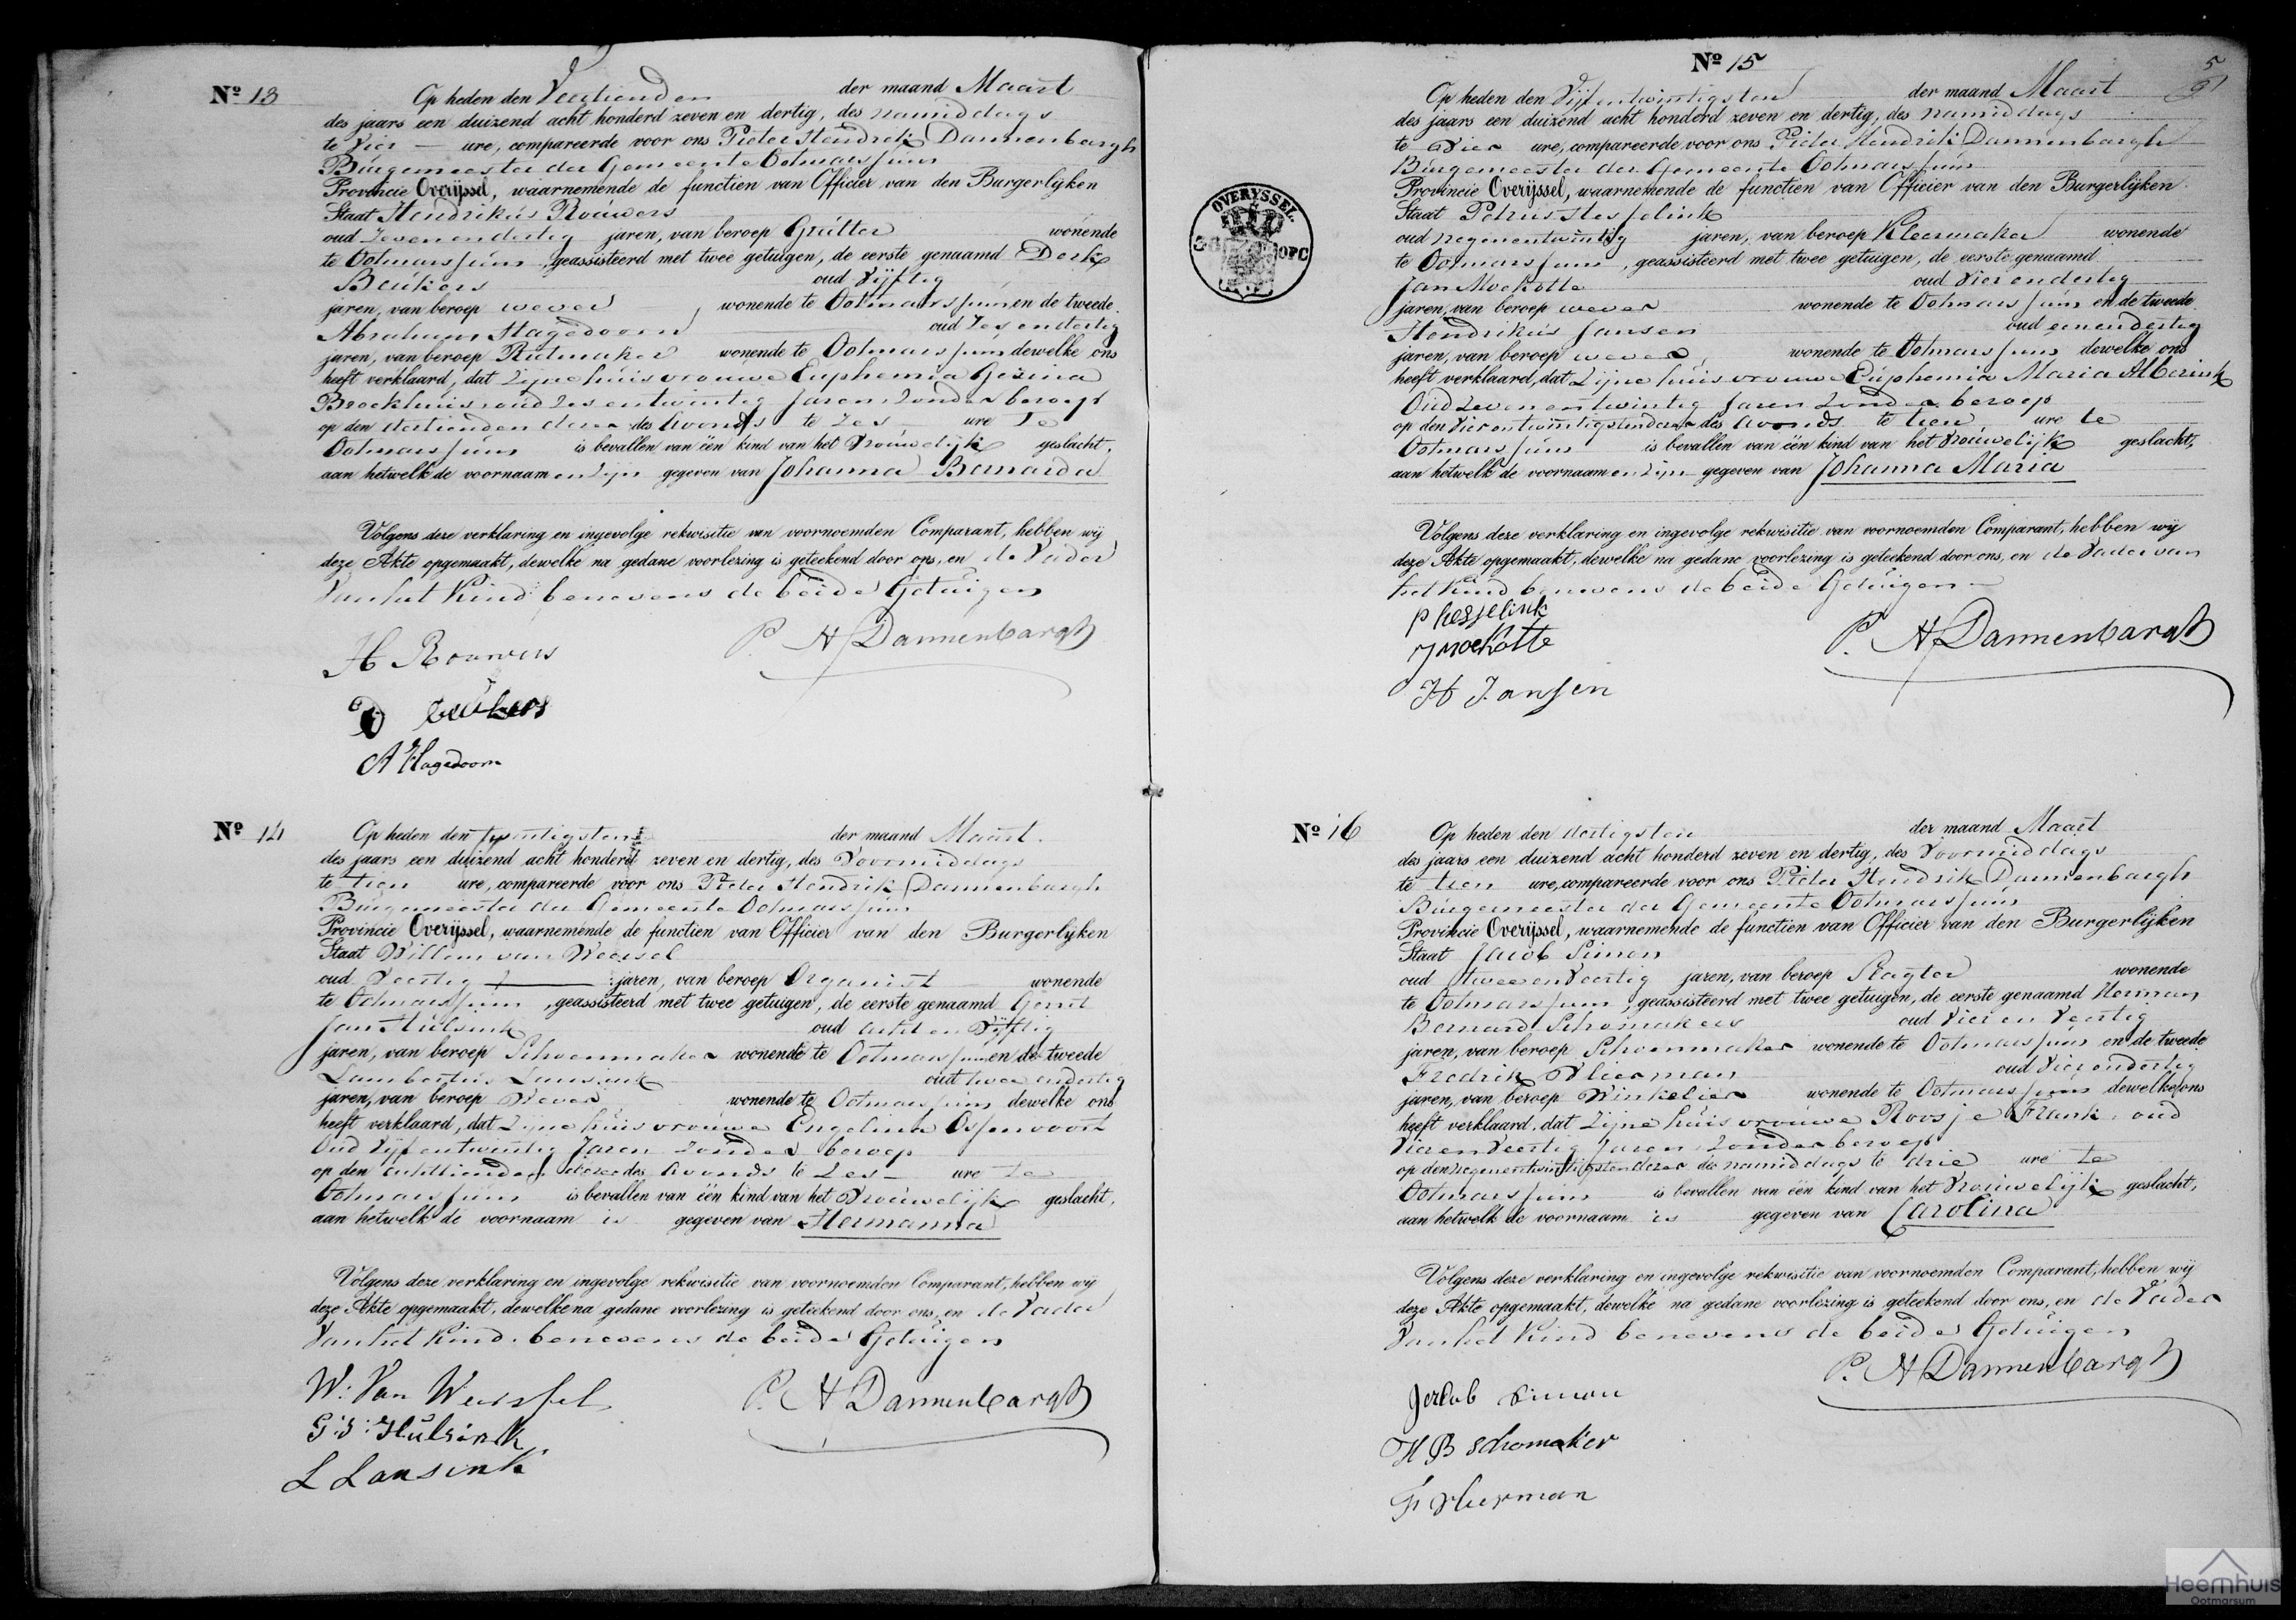 Nº 13
Op heden den Veertienden der maand Maart
des jaars een duizend acht honderd zeven en dertig, des namiddags
te Vier ure, compareerde voor ons Pieter Hendrik Dannenbargh
Burgemeester der Gemeente Ootmarssum
Provincie Overijssel, waarnemende de functien van Officier van den Burgerlijken
Staat Hendrikus Rouwers
oud Zevenendertig jaren, van beroep Grutter wonende
te Ootmarssum, geassisteerd met twee getuigen, de eerste genaamd Derk
Beukers oud Vijftig
jaren, van beroep wever, wonende te Ootmarssum, en de tweede
Abraham Hagedoorn oud Zesendertig
jaren, van beroep Rietmaker wonende te Ootmarssum dewelke ons
heeft verklaard, dat Zijne huisvrouwe Euphemia Gesina
Broekhuis oud Zesentwintig Jaren Zonder beroep
op den dertienden dezer des Avonds te Zes ure Te
Ootmarssum is bevallen van één kind van het Vrouwelijk geslacht,
aan hetwelk de voornaam en zijn gegeven van Johanna Bernarda
Volgens deze verklaring en ingevolge rekwisitie van voornoemden Comparant, hebben wij
deze Akte opgemaakt, dewelke na gedane voorlezing is geteekend door ons, en de Vader
van het Kind benevens de beide Getuigen
H Rouwers P. H Dannenbargh
D Beukers
A Hagedoorn
Nº 14
Op heden den twintigsten der maand Maart
des jaars een duizend acht honderd zeven en dertig, des Voormiddags
te tien ure, compareerde voor ons Pieter Hendrik Dannenbargh
Burgemeester der Gemeente Ootmarssum
Provincie Overijssel, waarnemende de functien van Officier van den Burgerlijken
Staat Willem van Weessel
oud Veertig jaren, van beroep Organist wonende
te Ootmarssum, geassisteerd met twee getuigen, de eerste genaamd Gerrit
Jan Hulsink oud acht en Vijftig
jaren, van beroep Schoenmaker wonende te Ootmarssum en de tweede
Lambertus Lansink oud twee endertig
jaren, van beroep Wever wonende te Ootmarssum dewelke ons
heeft verklaard, dat Zijne huisvrouwe Engelina Ossenvoort
Oud Vijfentwintig Jaren Zonder beroep
op den achttienden dezer des Avonds te Zes ure te
Ootmarssum is bevallen van één kind van het Vrouwelijk geslacht,
aan hetwelk de voornaam is gegeven van Hermanna
Volgens deze verklaring en ingevolge rekwisitie van voornoemden Comparant, hebben wij
deze Akte opgemaakt, dewelke na gedane voorlezing is geteekend door ons, en de Vader
van het Kind benevens de beide Getuigen
W: Van Weessel P. H Dannenbargh
G:J: Hulsink
L Lansink
OVERYSSEL.
OPC
Nº 15
5
Op heden den Vijfentwintigsten der maand Maart
des jaars een duizend acht honderd zeven en dertig, des namiddags
te Vier ure, compareerde voor ons Pieter Hendrik Dannenbargh
Burgemeester der Gemeente Ootmarssum
Provincie Overijssel, waarnemende de functien van Officier van den Burgerlijken
Staat Petrus Hesselink
oud negenentwintig jaren, van beroep Kleermaker wonende
te Ootmarssum, geassisteerd met twee getuigen, de eerste genaamd
Jan Moekotte oud Vierendertig
jaren, van beroep wever wonende te Ootmarssum en de tweede
Hendrikus Jansen oud eenendertig
jaren, van beroep wever, wonende te Ootmarssum dewelke ons
heeft verklaard, dat Zijne huisvrouwe Euphemia Maria Alberink
Oud Zevenentwintig Jaren Zonder beroep
op den Vierentwintigsten dezer des Avonds te tien ure te
Ootmarssum is bevallen van één kind van het Vrouwelijk geslacht,
aan hetwelk de voornaam en zijn gegeven van Johanna Maria
Volgens deze verklaring en ingevolge rekwisitie van voornoemden Comparant, hebben wij
deze Akte opgemaakt, dewelke na gedane voorlezing is geteekend door ons, en de Vader van
het Kind benevens de beide Getuigen
P hesselink P. H Dannenbargh
J moekotte
H Jansen
Nº 16
Op heden den dertigsten der maand Maart
des jaars een duizend acht honderd zeven en dertig, des Voormiddags
te tien ure, compareerde voor ons Pieter Hendrik Dannenbargh
Burgemeester der Gemeente Ootmarssum
Provincie Overijssel, waarnemende de functien van Officier van den Burgerlijken
Staat Jacob Simon
oud twee en Veertig jaren, van beroep Slagter wonende
te Ootmarssum, geassisteerd met twee getuigen, de eerste genaamd Herman
Bernard Schomakers oud Vier en Veertig
jaren, van beroep Schoenmaker wonende te Ootmarssum en de tweede
Fredrik Vleerman oud Vierendertig
jaren, van beroep Winkelier wonende te Ootmarssum dewelke ons
heeft verklaard, dat Zijne huisvrouwe Roosje Frank, oud
Vierenveertig Jaren Zonder beroep
op den negenentwintigsten dezer des namiddags te drie ure te
Ootmarssum is bevallen van één kind van het Vrouwelijk geslacht,
aan hetwelk de voornaam is gegeven van Carolina
Volgens deze verklaring en ingevolge rekwisitie van voornoemden Comparant, hebben wij
deze Akte opgemaakt, dewelke na gedane voorlezing is geteekend door ons, en de Vader
van het Kind benevens de beide Getuigen
Jacob Simon P. H Dannenbargh
H B Schomaker
F Vleerman
Heemhuis
Ootmarsum